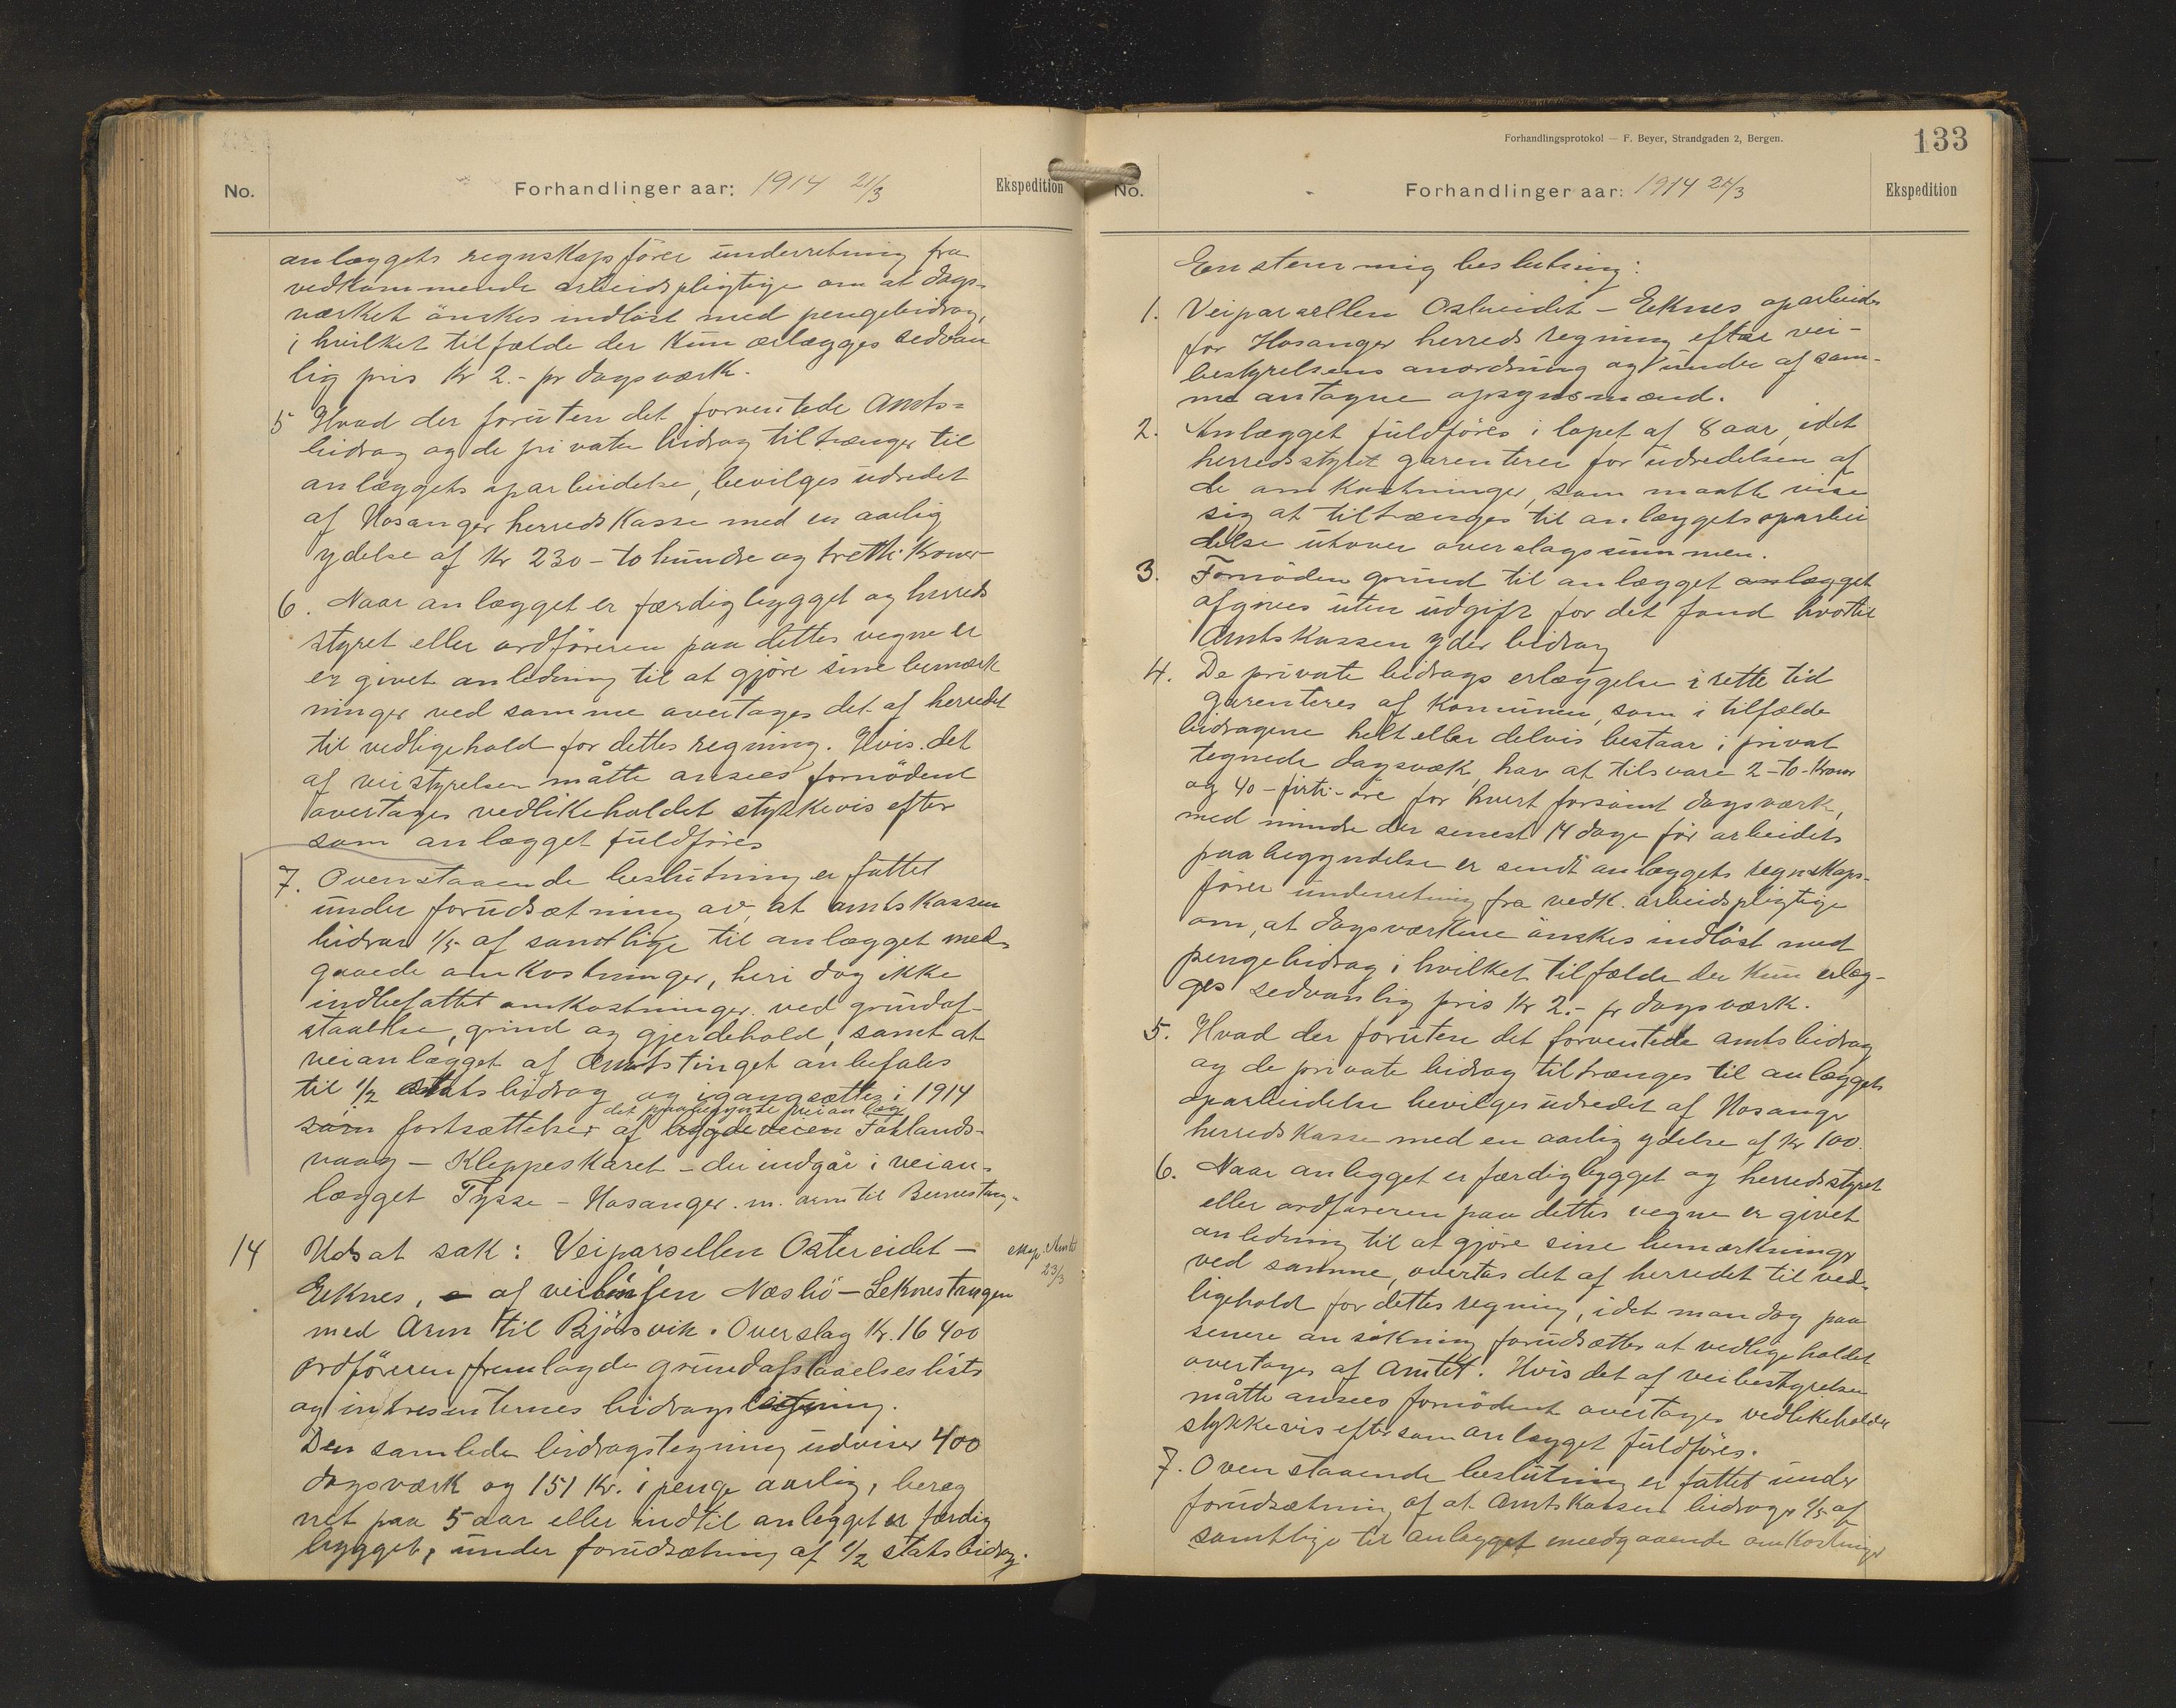 No. Forhandlinger aar: 1914 21/3 Ekspedition
anlæggets regnskapsfører underretning fra
vedkommende arbeidspligtige om at dags-
værket ønskes indløst med pengebidrag,
i hvilket tilfælde der kun erlægges sedvan
lig pris Kr 2.- pr dagsværk.
5 Hvad der foruten det forventede Amts-
bidrag og de private bidrag tiltrænges til
anlæggets oparbeidelse, bevilges udredet
af Hosanger herredskasse med en aarlig
ydelse af Kr 230 - to hundre og tretti Kroner
6. Naar anlægget er færdigbygget og herreds
styret eller ordføreren paa dettes vegne er
er givet anledning til at gjøre sine bemærk
ninger ved samme overtages det af herredet
til vedligehold for dettes regning. Hvis det
af veistyrelsen måtte ansees fornødent
overtages vedlikeholdet stykkevis efter
som anlægget fuldføres
7. Ovenstaaende beslutning er fattet
under forudsætning av, at amtskassen
bidrar 1/5 af samtlige til anlægget med-
gaaede omkostninger, heri dog ikke
indbefattet omkostninger ved grundaf-
staaelse, grind og gjerdehold, samt at
veianlægget af Amtstinget anbefales
til 1/2 statsbidrag og igangsættes i 1914
det paabegynte veianlæg
som fortsættelse af bygdeveien Fotlands-
vaag - Kleppeskaret - der indgår i veian-
lægget Tysse - Hosanger m. arm til Bernestang-
14 Udsat sak: Veiparsellen Ostereidet -
eksp. Amtet
23/3
Eeknes, af veilinjen Næsbø - Leknestangen
med Arm til Bjørsvik. Overslag Kr. 16400
Ordføreren fremlagde grundafstaaelseslists
og intresenternes bidragstegning.
Den samlede bidragstegning udviser 400
dagsværk og 151 Kr. i penge aarlig, bereg
net paa 5 aar eller indtil anlegget er færdig
bygget, under forudsætning af 1/2 statsbidrag.
Forhandlingsprotokol — F. Beyer, Strandgaden 2, Bergen.
133
No. Forhandlinger aar: 1914 21/3 Ekspedition
Enstemmig beslutning:
1. Veiparsellen Ostereidet - Eeknes oparbeides
for Hosanger herreds regning efter vei-
bestyrelsens anordning og under af sam-
me antagne opsynsmænd.
2. Anlægget fuldføres i løpet af 8 aar, idet
herredsstyret garenterer for udredelsen af
de omkostninger, som maatte vise
sig at tiltrænges til anlæggets oparbei
delse utover overslagssummen.
3. Fornøden grund til anlægget anlægget
afgives uten udgift for det fond hvortil
Amtskassen yder bidrag
4. De private bidrags erlæggelse i rette tid
garenteres af Komunen, som i tilfælde
bidragene helt eller delvis bestaar i privat
tegnede dagsværk, har at tilsvare 2 - to - Kroner
og 40 - firti - øre for hvert forsømt dagsværk,
med mindre der senest 14 dage før arbeidets
paabegyndelse er sendt anlæggets regnskaps-
fører underretning fra vedk. arbeidspligtige
om, at dagsværkene ønskes indløst med
pengebidrag i hvilket tilfælde der kun erlæg-
ges sedvanlig pris Kr 2.- pr dagsværk.
5. Hvad der foruten det forventede amtsbidrag
og de private bidrag tiltrænges til anlæggets
oparbeidelse bevilges udredet af Hosanger
herredskasse med en aarlig ydelse af Kr 100.
6. Naar anlegget er færdigbygget og herredsstyret
eller ordføreren paa dettes vegne er givet
anledning til at gjøre sine bemærkninger
ved samme, overtas det af herredet til ved-
ligehold for dettes regning, idet man dog paa
senere ansøkning forudsætter at vedligeholdet
overtages af Amtet. Hvis det af veibestyrelsen
måtte ansees fornødent overtages vedlikeholdet
stykkevis eftersom anlægget fuldføres.
7. Ovenstaaende beslutning er fattet under
forudsætning af at Amtskassen bidrager 1/5 af
samtlige til anlegget medgaaende omkostninger